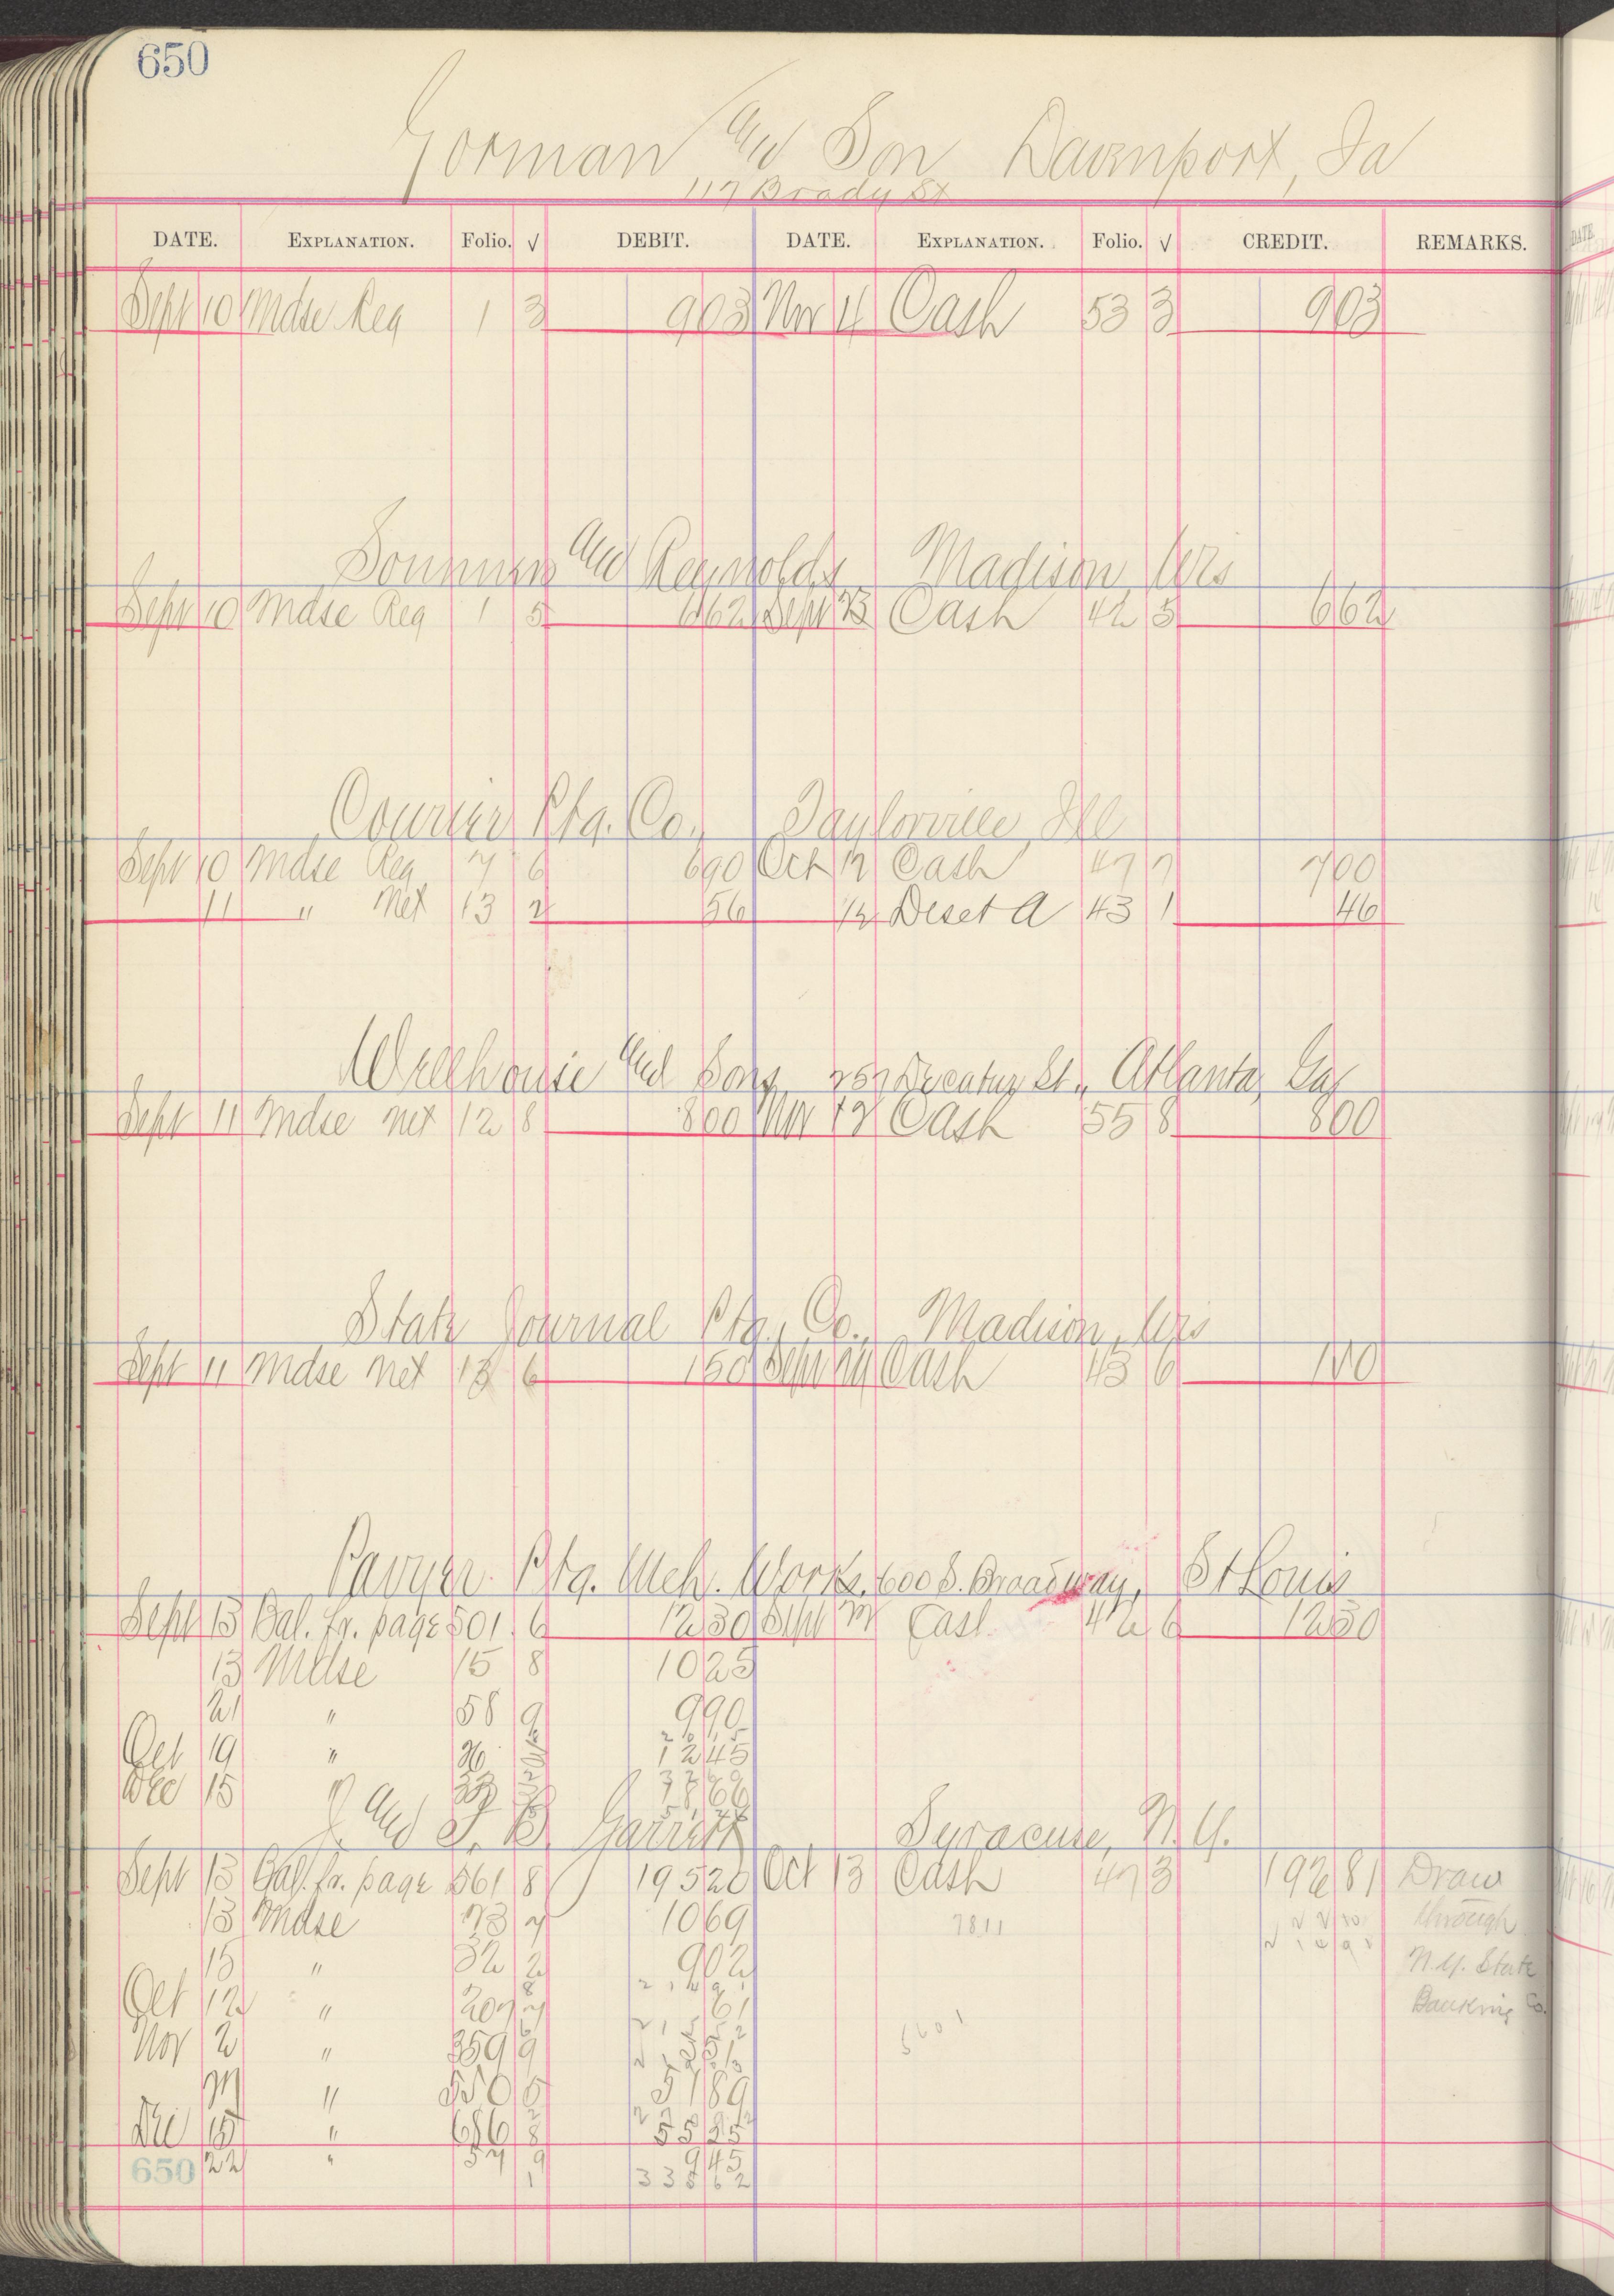 650
Gorman and Son Davenport, Ia
117 Brady St
DATE. EXPLANATION. Folio. √ DEBIT. DATE. EXPLANATION. Folio. √ CREDIT. REMARKS.
Sept 10 Mdse Reg 1 3 903 Nov 4 Cash 53 3 903
and Reynolds Madison Wis
Sept 10 Mdse Reg 1 5 662 Sept 23 Cash 42 5 662
Courier Ptg. Co., Taylorville, Ill
Sept 10 Mdse Reg 7 6 690 Oct 12 Cash 47 7 700
11 " Net 13 2 56 12 Deset A 43 1 46
Wellhouse and Sons 257 Decatur St., Atlanta, Ga
Sept 11 Mdse Net 12 8 800 Nov 12 Cash 55 8 800
State Journal Ptg. Co., Madison, Wis
Sept 11 Mdse Net 13 6 150 Sept Cash 43 6 150
Pavyer Ptg. Mch. Works, 600 S. Broadway, St Louis
Sept 13 Bal. fr. page 501 6 1230 Sept Cash 42 6 1230
13 Mdse 15 8 1025
21 " 58 9 990
Oct 19 " 1245
Dec 15 "
J. and F. B. Garrett Syracuse, N.Y.
Sept 13 Bal. fr. page 561 8 19520 Oct 13 Cash 47 3 19281 Draw
13 Mdse 23 7 1069 7811 through
15 " 32 2 902 N.Y. State
Oct 12 " 207 7 61 Banking Co.
Nov 2 " 359 9
" 550 5 5189
Dec 15 " 686 8 5525
650 22 " 57 9 945
1 33562